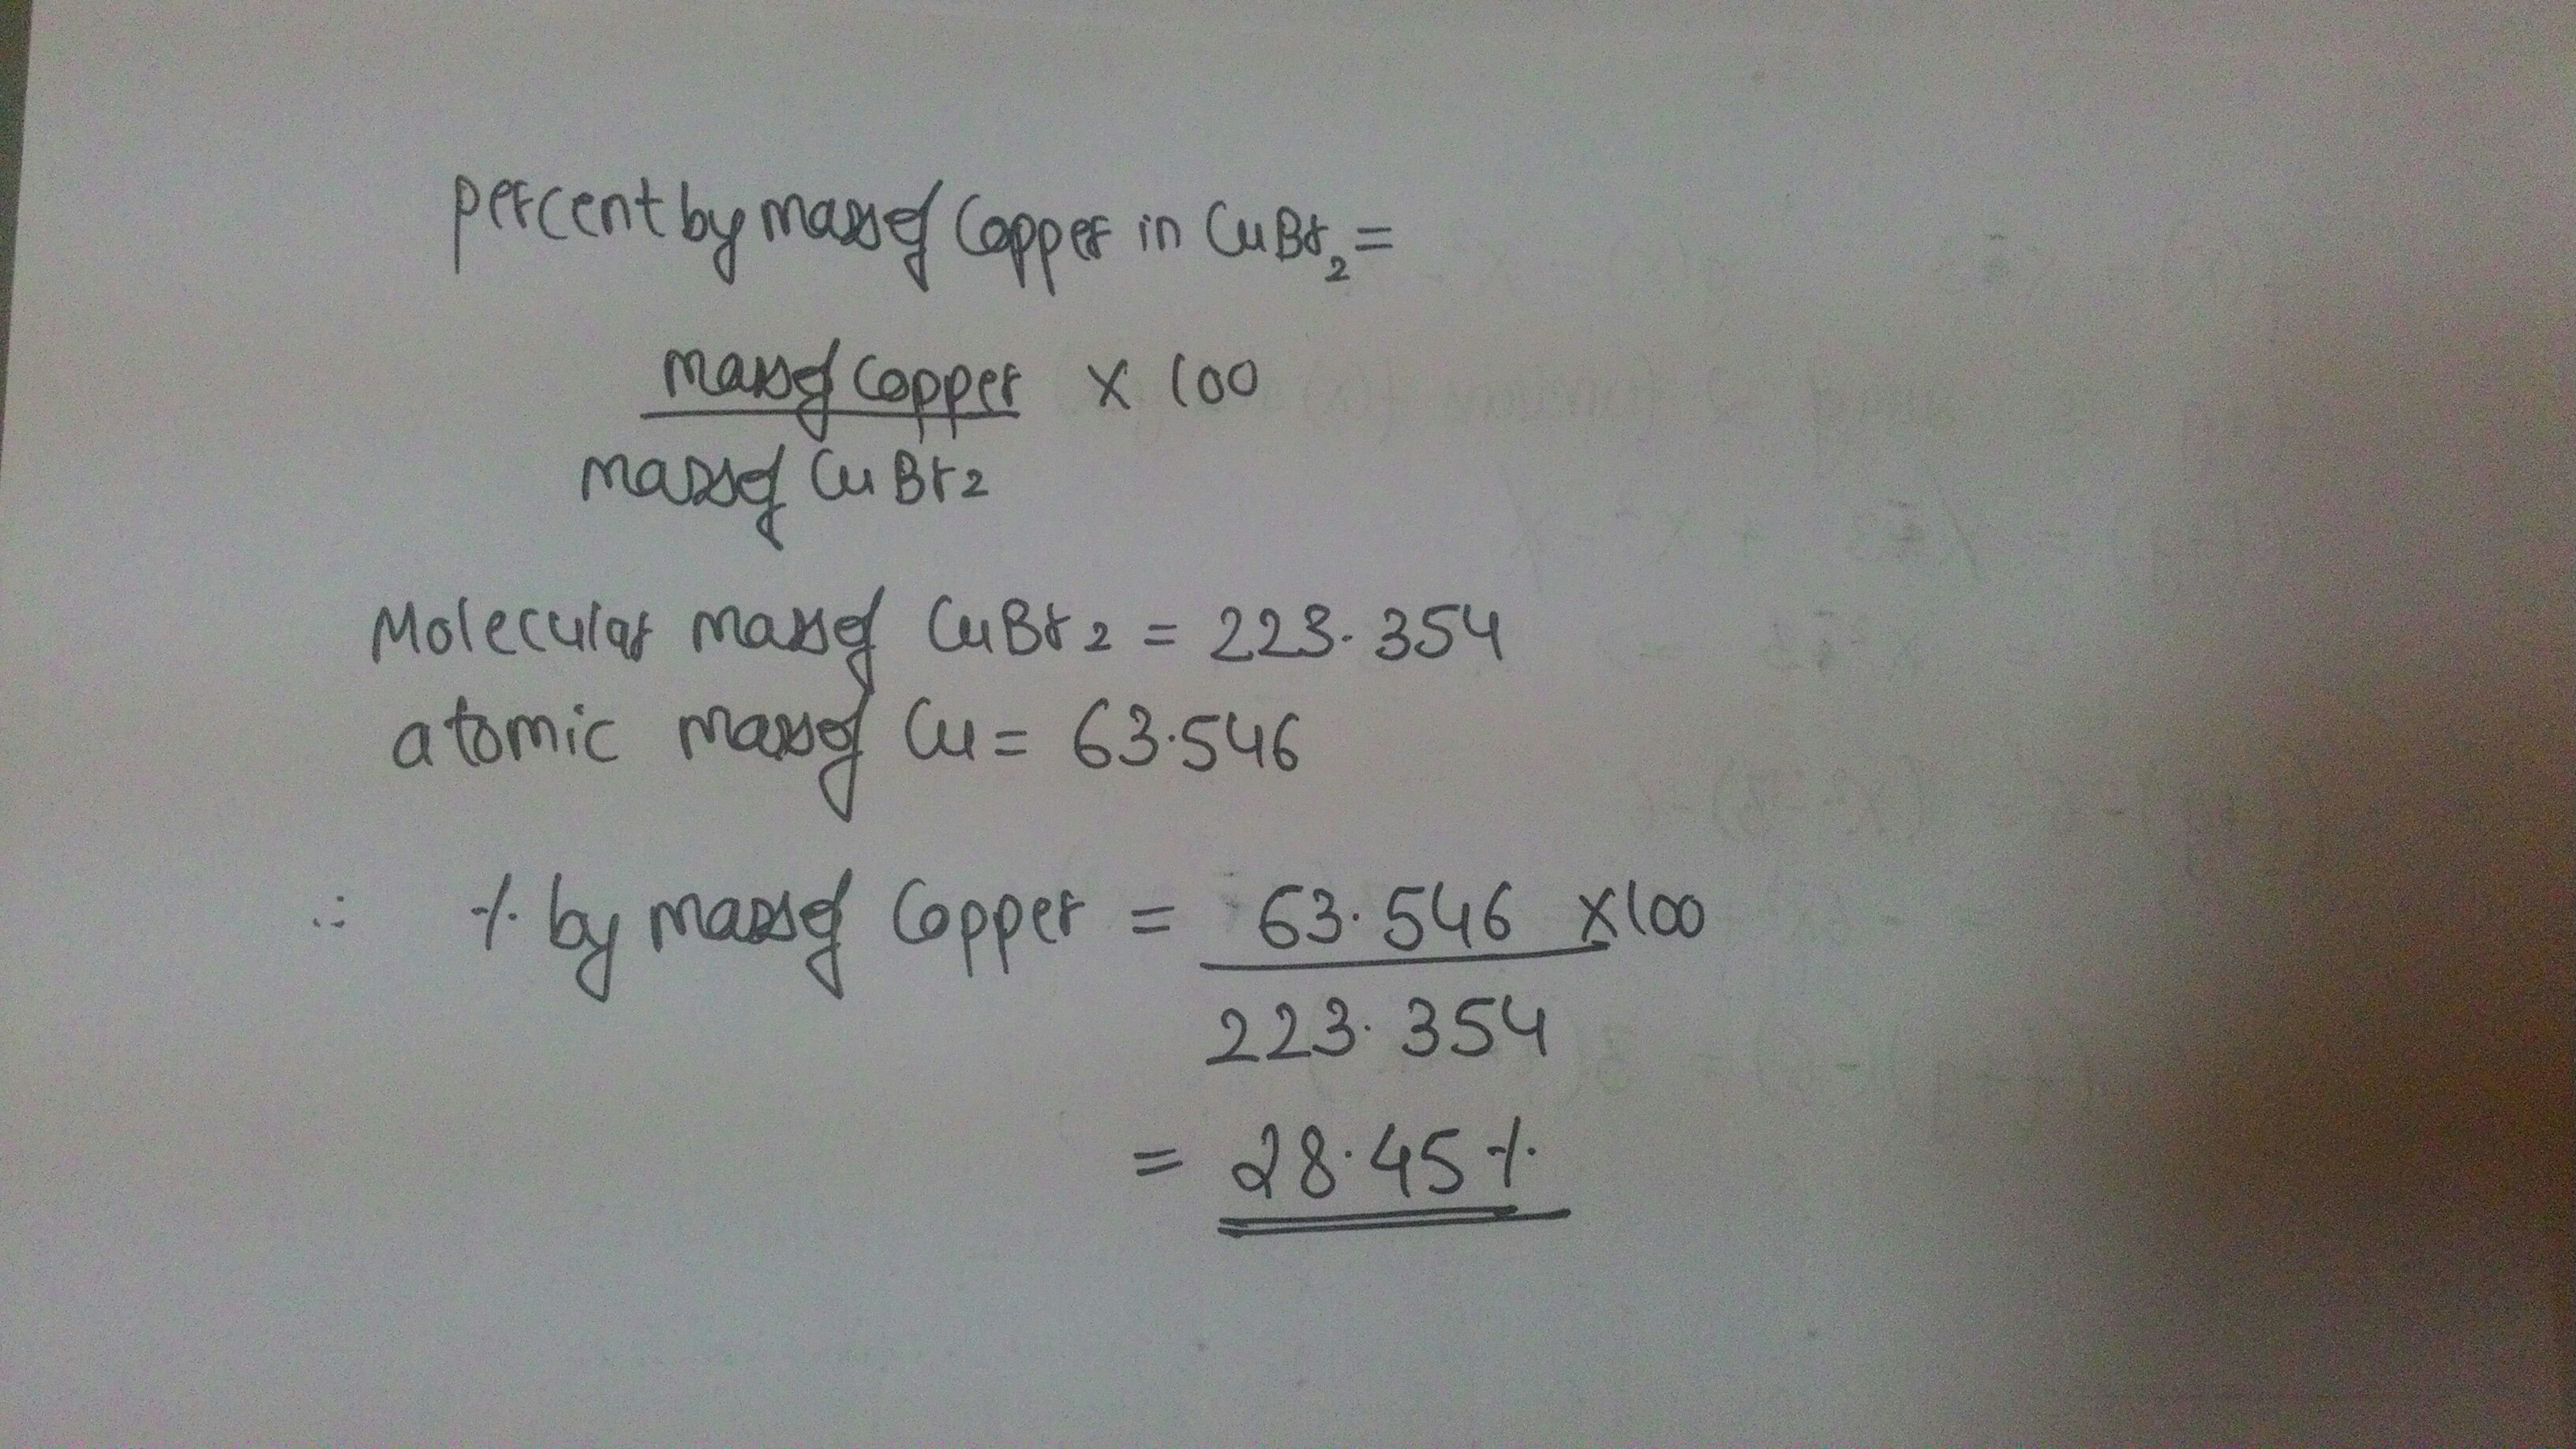 Percent by mass of Copper in CuBr2 =
mass of Copper × 100
mass of CuBr2
Molecular mass of CuBr2 = 223.354
atomic mass of Cu = 63.546
∴ % by mass of Copper = 63.546 ×100
223.354
= 28.45 %